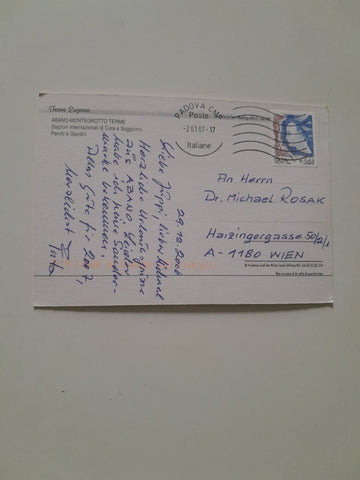 Terme Euganee
ABANO-MONTEGROTTO TERME
Stazioni Internazionali di Cura e Soggiorno
Parchi e Giardini
PADOVA CMP
Poste
-2.01.07-17
Italiane
29.12.2006
Lieber Michael
Herzliche Urlaubsgrüsse
aus ABANO, leider
habe ich keine Sonder-
marke bekommen.
Alles Gute für 2007,
Herzlichst
An Herrn
Dr. Michael ROSAK
Haizingergasse 50/2/1
A-1180 WIEN